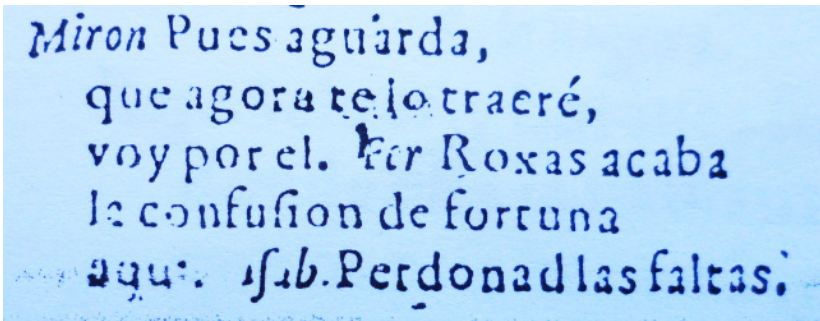 Miron Pues aguarda,
que agora te lo traeré,
voy por el. Fer Roxas acaba
la confuſion de fortuna
aqui. Iſab. Perdonad las faltas.